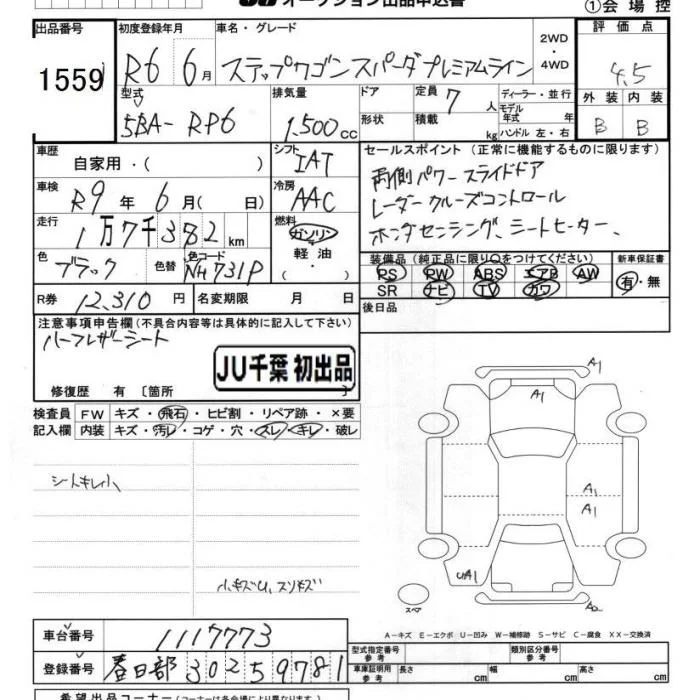 オークション出品申込書
①会場控
出品番号 初度登録年月 車名・グレード 評価点
1559 R6 6月 ステップワゴン スパーダプレミアムライン 2WD・4WD 4.5
型式 排気量 ドア 定員 7人 ディーラー・並行 外装 内装
5BA-RP6 1,500cc 形状 積載 kg モデル年式 年 B B
ハンドル 左・右
車歴 自家用・( ) シフト IAT セールスポイント(正常に機能するものに限ります)
車検 R9年6月( 日) 冷房 AAC 両側パワースライドドア
レーダークルーズコントロール
走行 1万7千382km 燃料 ガソリン・軽油・( ) ホンダセンシング、シートヒーター、
色 ブラック 色替 色コード NH731P 装備品(純正品に限り○をつけてください) 新車保証書
PS PW ABS エアB AW 有・無
R券 12,310円 名変期限 月 日 SR ナビ TV カワ
後日品
注意事項申告欄(不具合内容等は具体的に記入して下さい)
ハーフレザーシート
JU千葉 初出品
修復歴 有〔箇所 〕
検査員 FW キズ・飛石・ヒビ割・リペア跡・×要
記入欄 内装 キズ・汚レ・コゲ・穴・スレ・キレ・破レ
A1
A1
シートキレ小、
A1
A1
小キズU、スリキズ
UA1
スペア
A-キズ E-エクボ U-凹み W-補修跡 S-サビ C-腐食 XX-交換済
車台番号 1117773
型式指定番号 参考 類別区分番号 参考
登録番号 春日部 302 59781
車庫証明用 参考 長さ cm 幅 cm 高さ cm
希望出品コーナー(コーナーは各会場により異なります)